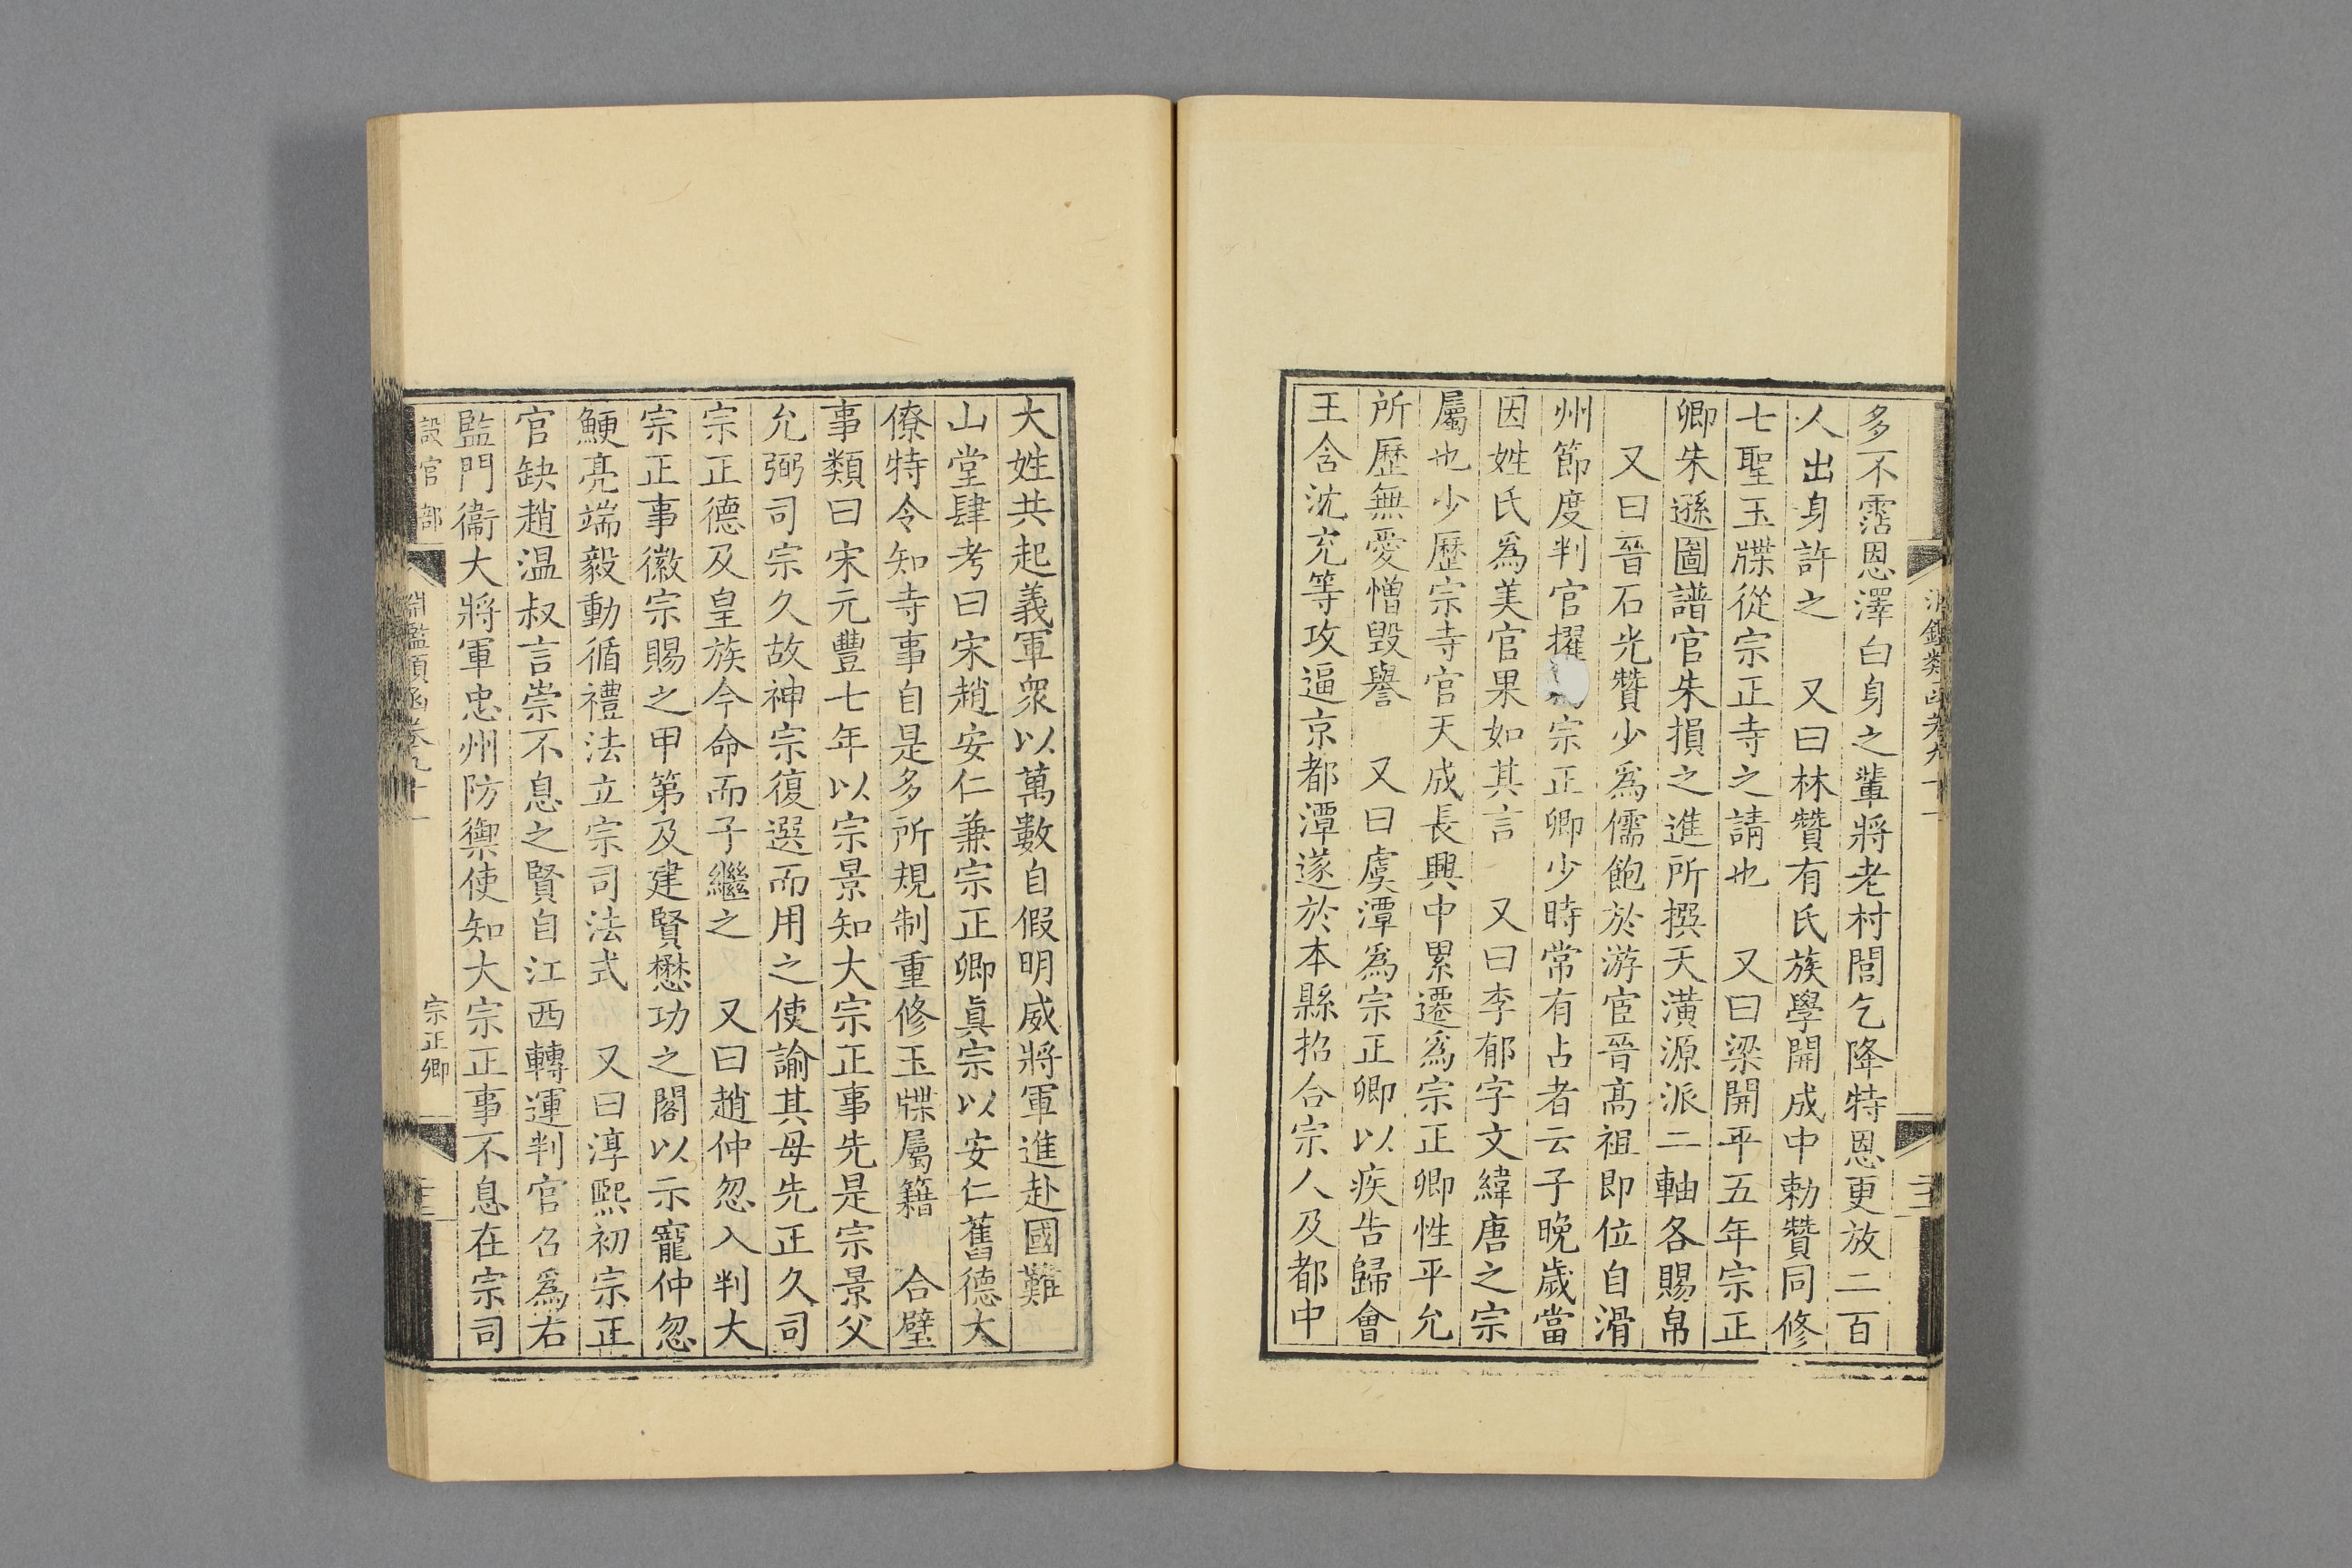 多不霑恩澤白身之輩將老村閭乞降特恩更放二百
人出身許之 又曰林贊有氏族學開成中勅贊同修
七聖玉牒從宗正寺之請也 又曰梁開平五年宗正
卿朱遜圖譜官朱損之進所撰天潢源派二軸各賜帛
又曰晉石光贊少爲儒飽於游宦晉高祖即位自滑
州節度判官擢 宗正卿少時常有占者云子晚歲當
因姓氏爲美官果如其言 又曰李郁字文緯唐之宗
屬也少歷宗寺官天成長興中累遷爲宗正卿性平允
所歷無愛憎毀譽 又曰虞潭爲宗正卿以疾告歸會
王含沈充等攻逼京都潭遂於本縣招合宗人及都中
大姓共起義軍衆以萬數自假明威將軍進赴國難
山堂肆考曰宋趙安仁兼宗正卿眞宗以安仁舊德大
僚特令知寺事自是多所規制重修玉牒屬籍 合璧
事類曰宋元豐七年以宗景知大宗正事先是宗景父
允弼司宗久故神宗復選而用之使諭其母先正久司
宗正德及皇族今命而子繼之 又曰趙仲忽入判大
宗正事徽宗賜之甲第及建賢懋功之閣以示寵仲忽
鯁亮端毅動循禮法立宗司法式 又曰淳熙初宗正
官缺趙温叔言崇不息之賢自江西轉運判官召爲右
監門衞大將軍忠州防禦使知大宗正事不息在宗司
設官部 淵鑑類函卷九十一 宗正卿